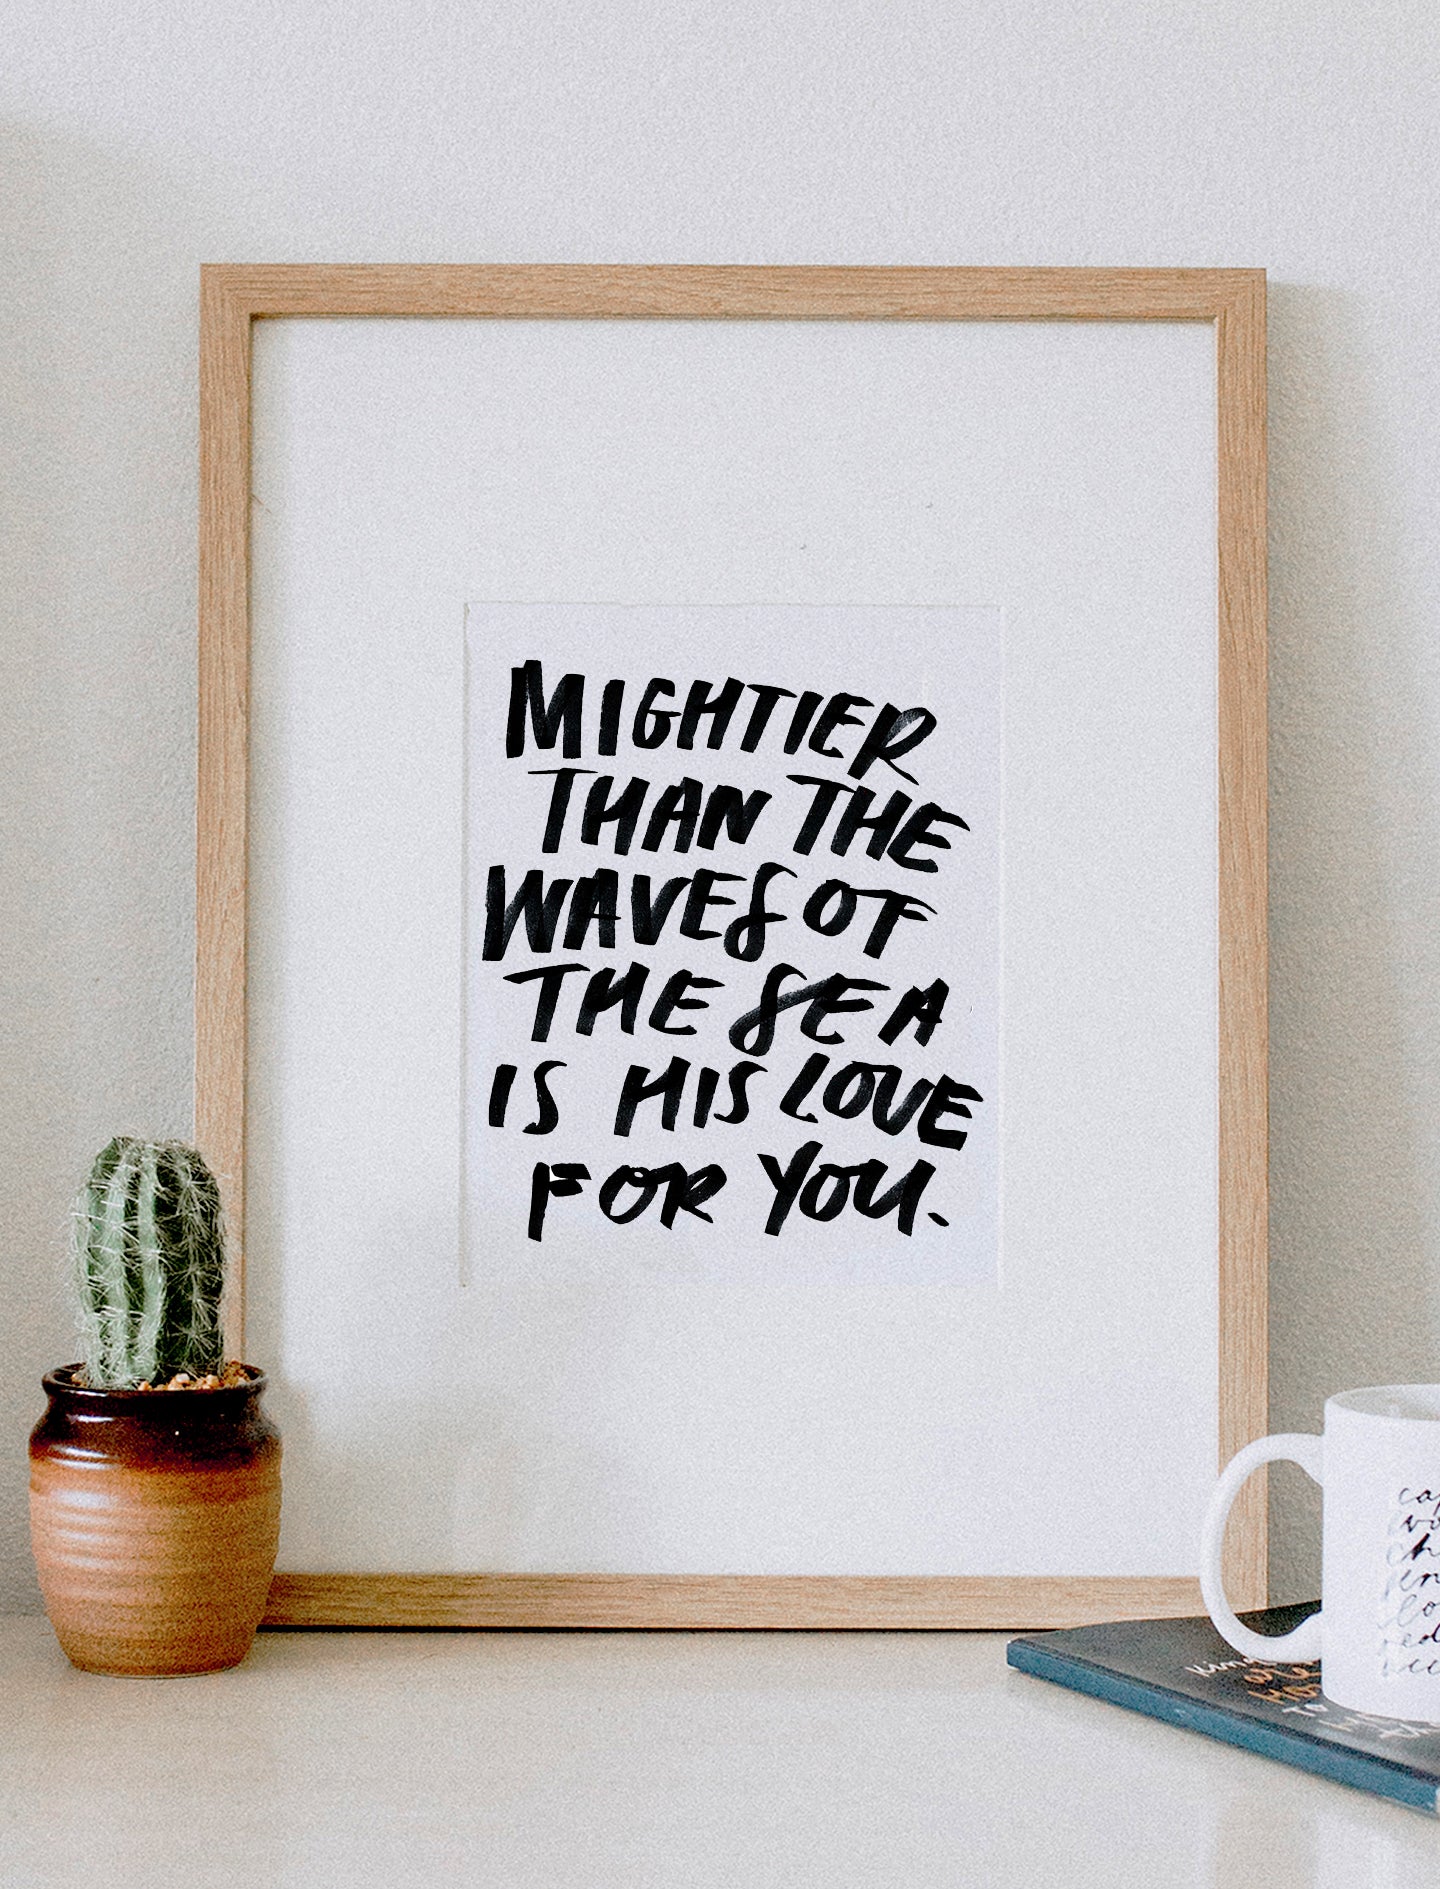 MIGHTIER
THAN THE
WAVES OF
THE SEA
IS HIS LOVE
FOR YOU.